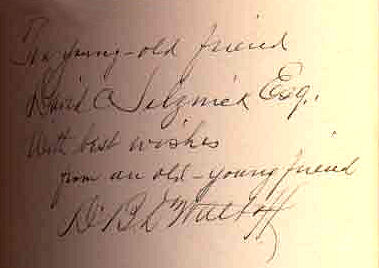 To young-old friend
David O Selznick Esq.
With best wishes
from an old-young friend